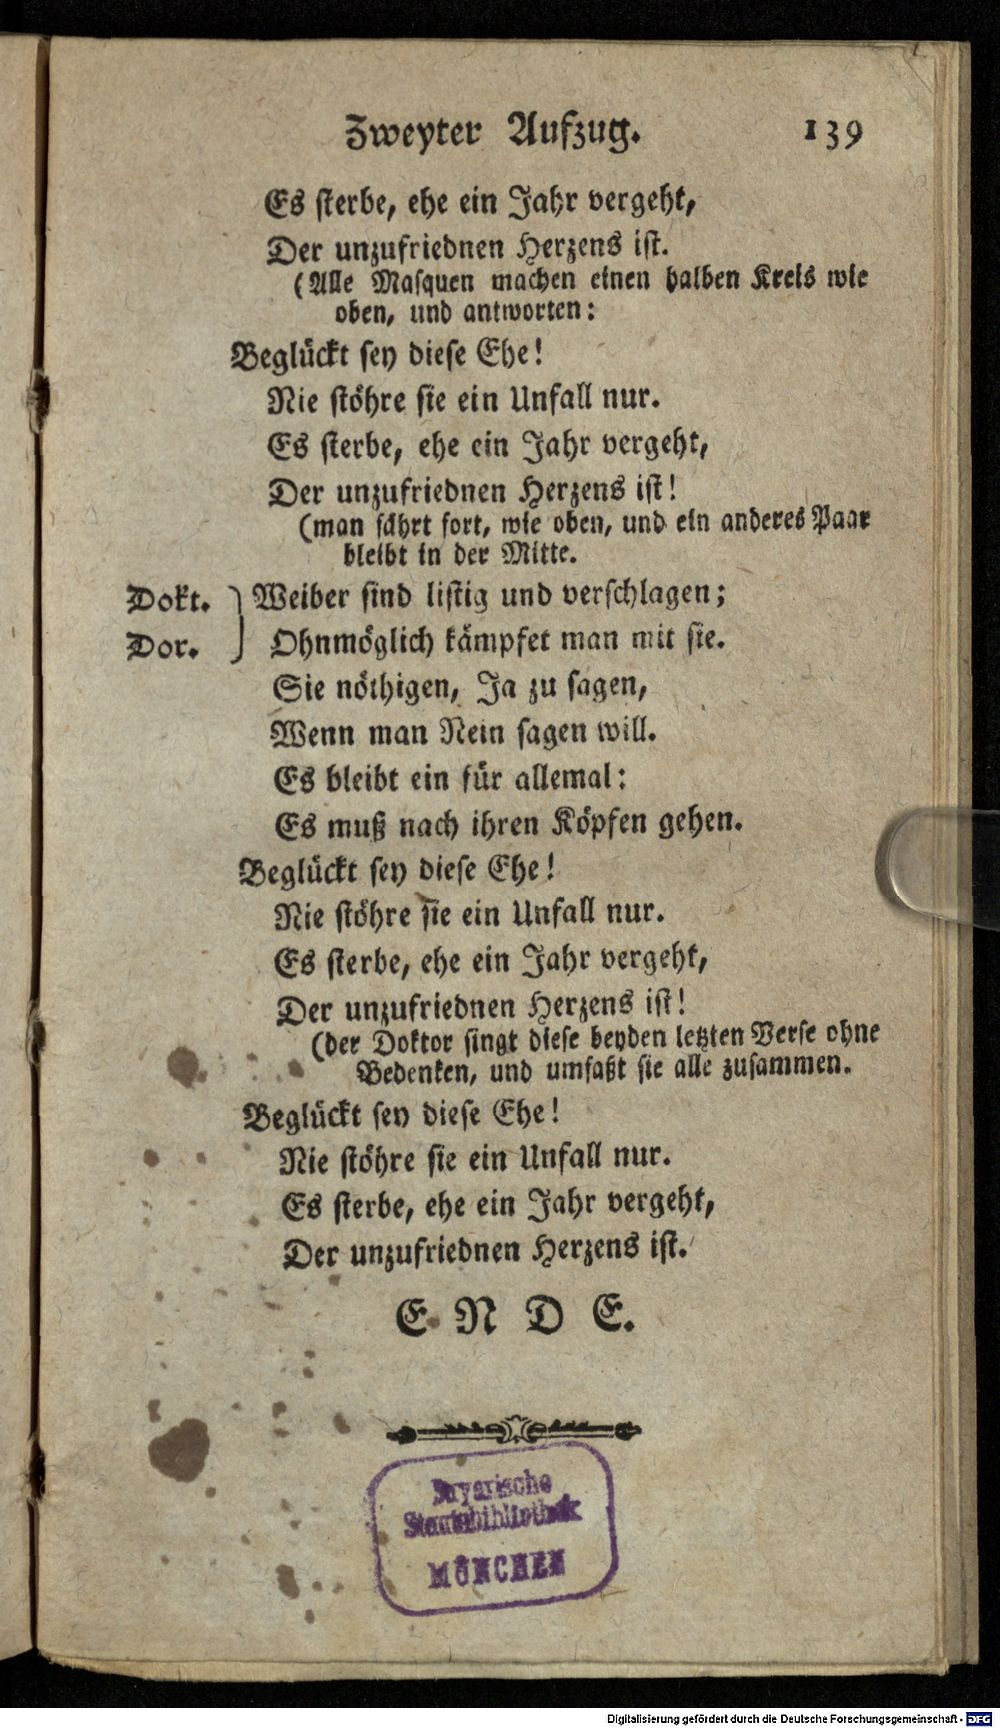 Zweyter Aufzug. 139
Es sterbe, ehe ein Jahr vergeht,
Der unzufriednen Herzens ist.
(Alle Masquen machen einen halben Kreis wie
oben, und antworten:
Beglückt sey diese Ehe!
Nie stöhre sie ein Unfall nur.
Es sterbe, ehe ein Jahr vergeht,
Der unzufriednen Herzens ist!
(man fährt fort, wie oben, und ein anderes Paar
bleibt in der Mitte.
Dokt. } Weiber sind listig und verschlagen;
Dor. } Ohnmöglich kämpfet man mit sie.
Sie nöthigen, Ja zu sagen,
Wenn man Nein sagen will.
Es bleibt ein für allemal:
Es muß nach ihren Köpfen gehen.
Beglückt sey diese Ehe!
Nie stöhre sie ein Unfall nur.
Es sterbe, ehe ein Jahr vergeht,
Der unzufriednen Herzens ist!
(der Doktor singt diese beyden letzten Verse ohne
Bedenken, und umfaßt sie alle zusammen.
Beglückt sey diese Ehe!
Nie stöhre sie ein Unfall nur.
Es sterbe, ehe ein Jahr vergeht,
Der unzufriednen Herzens ist.
ENDE.
Bayerische
Staatsbibliothek
MÜNCHEN
Digitalisierung gefördert durch die Deutsche Forschungsgemeinschaft - DFG